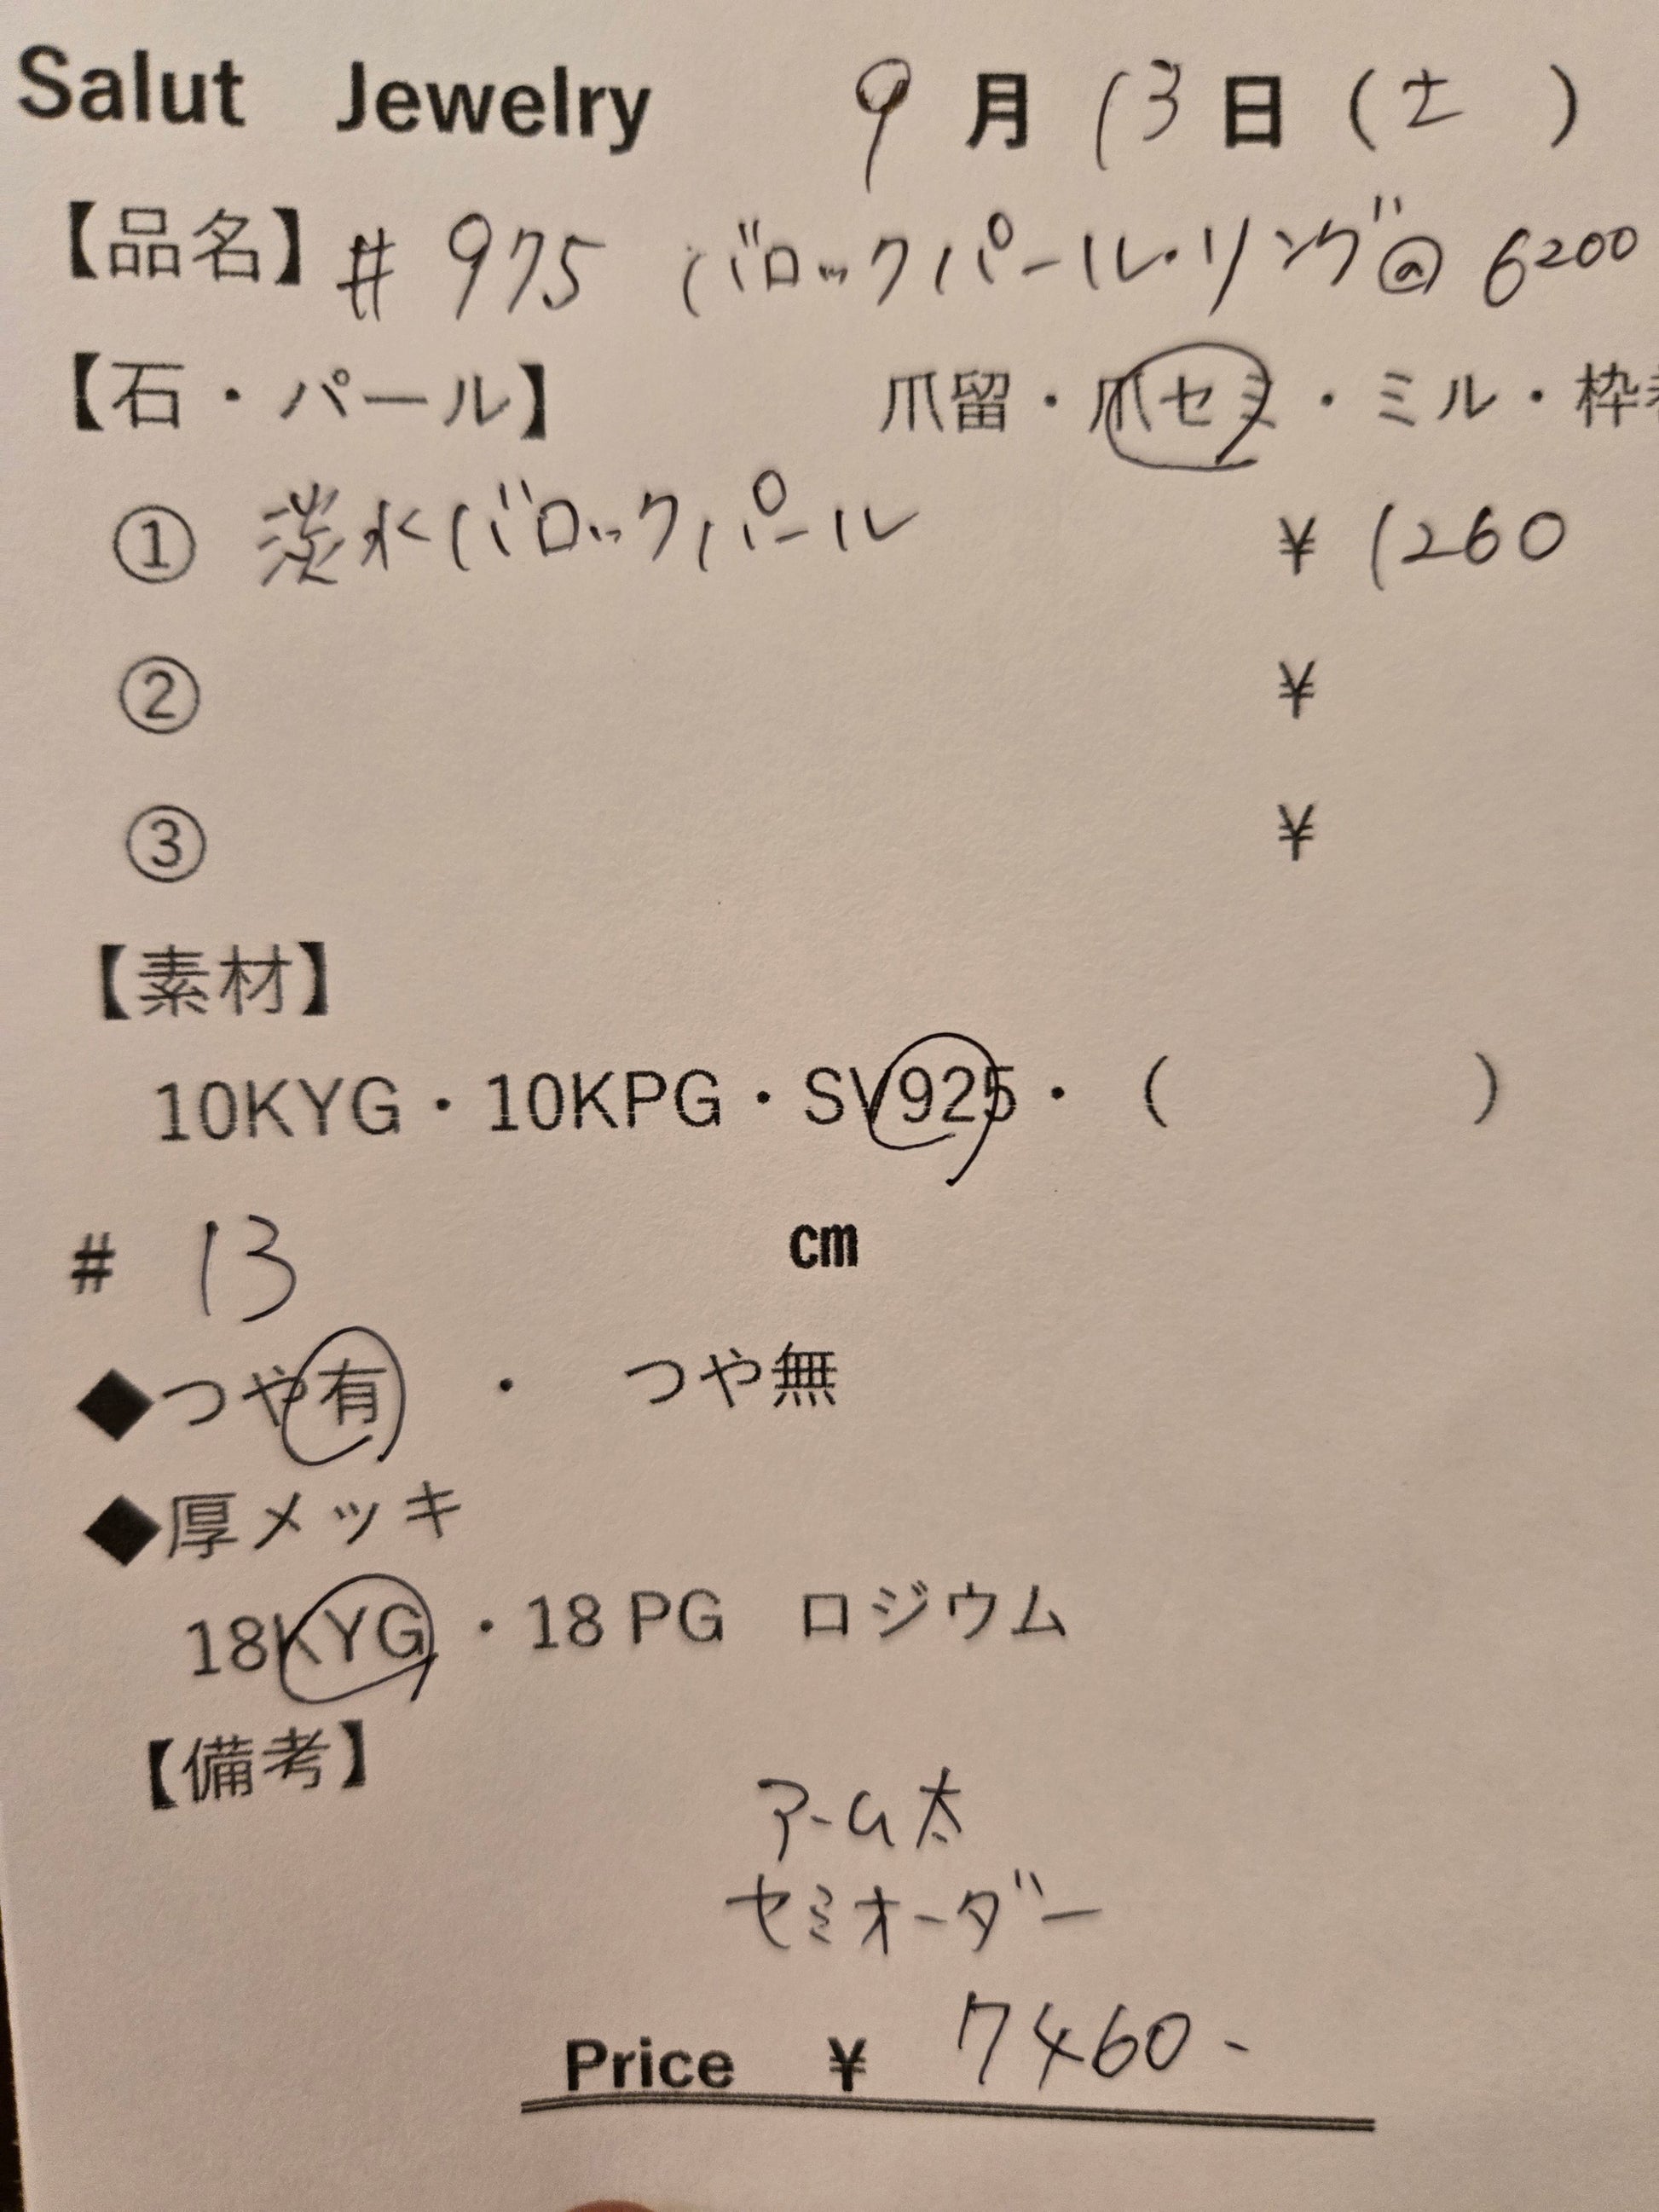 Salut Jewelry 9月13日(土)
【品名】#975 バロックパール・リング@6200
【石・パール】 爪留・爪セミ・ミル・枠
① 淡水バロックパール ¥1260
② ¥
③ ¥
【素材】
10KYG・10KPG・SV925・( )
# 13 cm
◆つや有 ・ つや無
◆厚メッキ
18KYG ・18 PG ロジウム
【備考】
アーム太
セミオーダー
Price ¥ 7460-